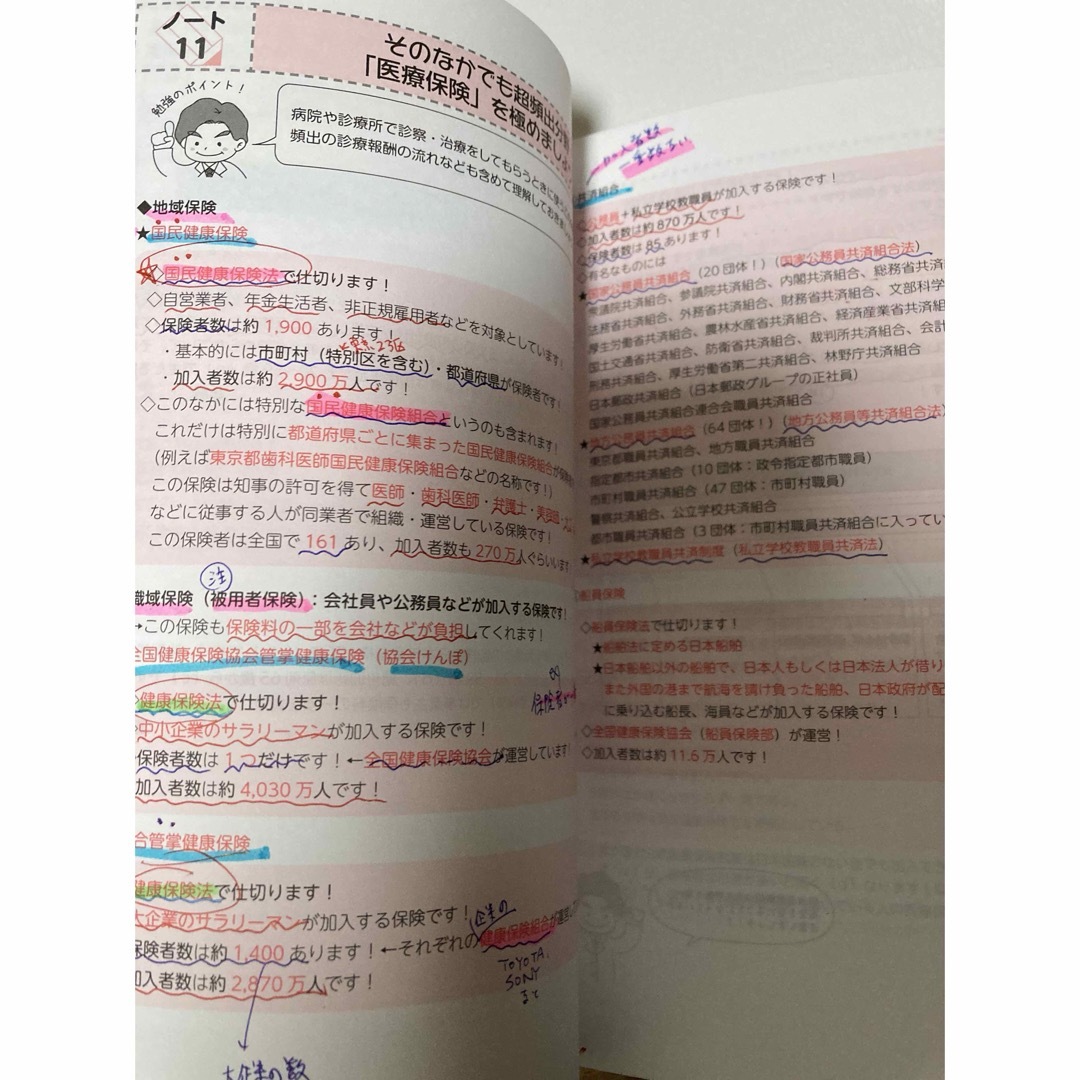 ノート
11
そのなかでも超頻出分野
「医療保険」を極めましょ
勉強のポイント！
病院や診療所で診察・治療をしてもらうときに使
頻出の診療報酬の流れなども含めて理解しておき
◆地域保険
★国民健康保険
◇国民健康保険法で仕切ります！
◇自営業者、年金生活者、非正規雇用者などを対象としています！
◇保険者数は約 1,900 あります！
東京23区
・基本的には市町村（特別区を含む）・都道府県が保険者です！
・加入者数は約 2,900 万人です！
◇このなかには特別な国民健康保険組合というのも含まれます！
これだけは特別に都道府県ごとに集まった国民健康保険組合が
（例えば東京都歯科医師国民健康保険組合などの名称です！）
この保険は知事の許可を得て医師・歯科医師・弁護士・美容師
などに従事する人が同業者で組織・運営している保険です！
この保険者は全国で 161 あり、加入者数も 270 万人ぐらいいます
注
職域保険（被用者保険）：会社員や公務員などが加入する保険です！
→この保険も保険料の一部を会社などが負担してくれます！
全国健康保険協会管掌健康保険（協会けんぽ）
健康保険法で仕切ります！
保険者
中小企業のサラリーマンが加入する保険です！
保険者数は 1つだけです！←全国健康保険協会が運営しています！
加入者数は約 4,030 万人です！
合管掌健康保険
健康保険法で仕切ります！
大企業のサラリーマンが加入する保険です！
企業の
保険者数は約 1,400 あります！←それぞれの健康保険組合が運営し
加入者数は約 2,870 万人です！
TOYOTA
SONY
など
大企業の数
加入者数
一番多い
共済組合
◇公務員＋私立学校教職員が加入する保険です！
◇加入者数は約 870 万人です！
◇保険者数は 85 あります！
◇有名なものには
★国家公務員共済組合（20 団体！）（国家公務員共済組合法）
衆議院共済組合、参議院共済組合、内閣共済組合、総務省共済
法務省共済組合、外務省共済組合、財務省共済組合、文部科学
厚生労働省共済組合、農林水産省共済組合、経済産業省共済組
国土交通省共済組合、防衛省共済組合、裁判所共済組合、会計
刑務共済組合、厚生労働省第二共済組合、林野庁共済組合
日本郵政共済組合（日本郵政グループの正社員）
国家公務員共済組合連合会職員共済組合
★地方公務員共済組合（64 団体！）（地方公務員等共済組合法）
東京都職員共済組合、地方職員共済組合
指定都市共済組合（10 団体：政令指定都市職員）
市町村職員共済組合（47 団体：市町村職員）
警察共済組合、公立学校共済組合
都市職員共済組合（3 団体：市町村職員共済組合に入ってい
★私立学校教職員共済制度（私立学校教職員共済法）
船員保険
◇船員保険法で仕切ります！
★船舶法に定める日本船舶
★日本船舶以外の船舶で、日本人もしくは日本法人が借り
また外国の港まで航海を請け負った船舶、日本政府が配
に乗り込む船長、海員などが加入する保険です！
◇全国健康保険協会（船員保険部）が運営！
◇加入者数は約 11.6 万人です！